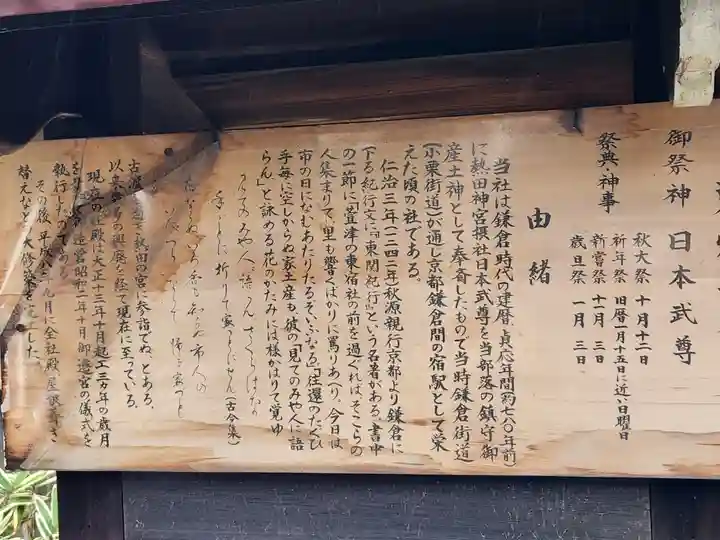 御祭神 日本武尊
祭典・神事
秋大祭 十月十二日
祈年祭 旧暦一月十五日に近い日曜日
新嘗祭 十一月三日
歳旦祭 一月三日
由緒
当社は鎌倉時代の建暦、貞応年間(約七八〇年前)
に熱田神宮摂社日本武尊を当部落の鎮守御
産土神として奉斎したもので当時鎌倉街道
(小栗街道)が通じ京都鎌倉間の宿駅として栄
えた頃の社である。
仁治三年(一二四二年)秋源親行京都より鎌倉に
下る紀行文に『東関紀行』という名著がある。書中
の一節に「萱津の東宿社の前を過ぐれは、そこらの
人集まりて、里も響くはかりに罵りあへり、今日は
市の日になむあたりたるそいふなる、「往還のたくひ
手毎に空しからぬ家土産も彼の「見てのみや人に語
らん」と詠める花のかたみには様かはりて覚ゆ
市人の
帰る家つと
見てのみや人に語らん さくらはな
手ことに折りて家つとにせん(古今集)
熱田の宮に参詣でぬ」とある。
以来 の興廃を経て現在に至っている。
現在の 殿は大正十三年十月起工三ケ年の歳月
造営昭和二年十月御遷宮の儀式を
執行したのである。
その後、平成 年九月に全社殿、屋根葺き
替えなど、大修築を した。